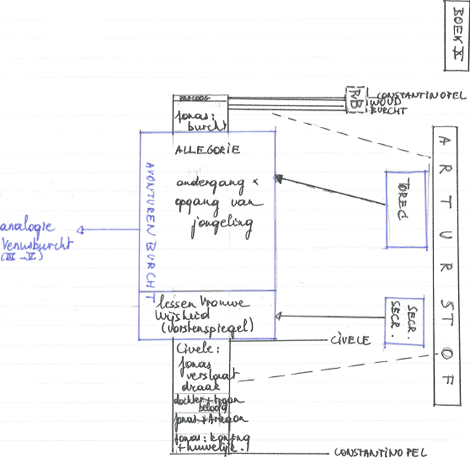 BOEK X
PROLOOG
CONSTANTINOPEL
WOUD
BURCHT
RvB
jonas:
burcht
ALLEGORIE
ondergang &
opgang van
jongeling
AVONTUREN BURCHT
TOREC
ARTURSTOF
analogie
Venusburcht
(III → V)
lessen Vrouwe
Wijsheid
(vorstenspiegel)
SEGR.
SECR.
Civele:
jonas
verslaat
draak
CIVELE
dochter+
beloofd
jonas + Aragon
jonas: koning
+ huwelijk.
CONSTANTINOPEL